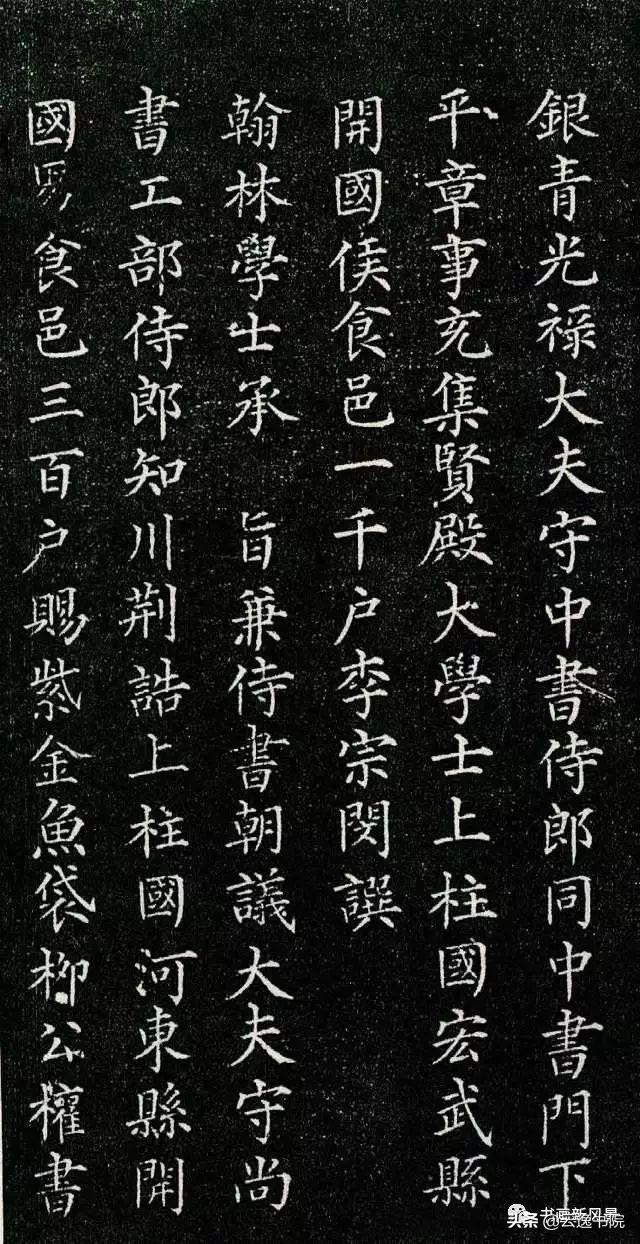 銀青光禄大夫守中書侍郎同中書門下
平章事充集賢殿大學士上柱國宏武縣
開國侯食邑一千户李宗閔譔
翰林學士承 旨兼侍書朝議大夫守尚
書工部侍郎知川荆誥上柱國河東縣開
國男食邑三百户賜紫金魚袋柳公權書
书画新风景
头条 @云逸书院